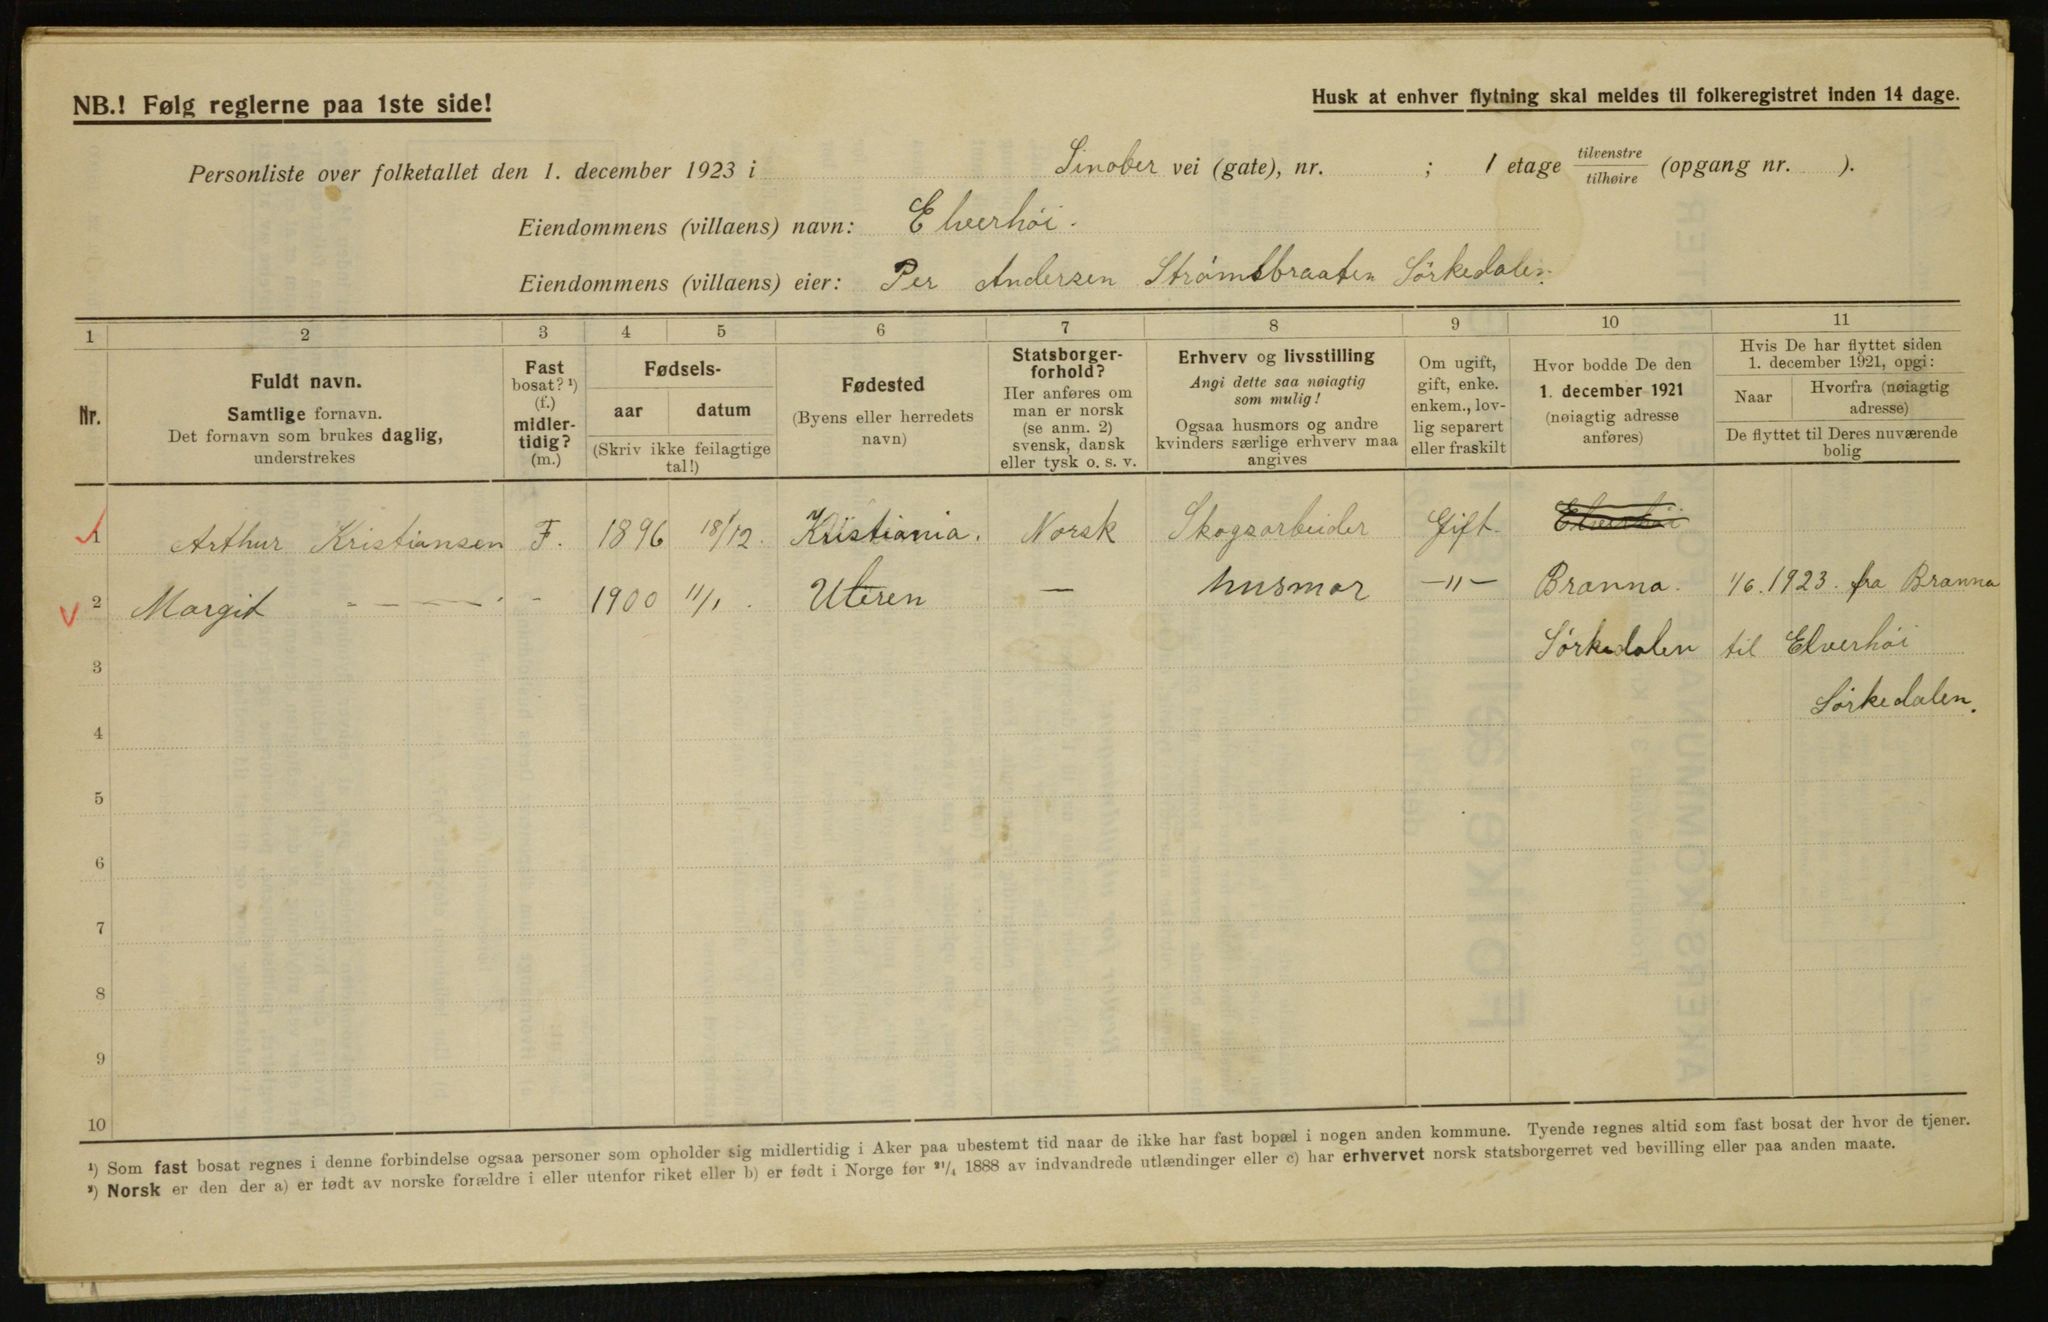 NB.! Følg reglerne paa 1ste side!
Husk at enhver flytning skal meldes til folkeregistret inden 14 dage.
Personliste over folketallet den 1. december 1923 i Sinober vei (gate), nr. ; 1 etage tilvenstre/tilhøire (opgang nr. ).
Eiendommens (villaens) navn: Elverhöi.
Eiendommens (villaens) eier: Per Andersen Strömsbraaten Sörkedalen.
1 2 3 4 5 6 7 8 9 10 11
Nr.
Fuldt navn.
Samtlige fornavn.
Det fornavn som brukes daglig,
understrekes
Fast
bosat? ¹)
(f.)
midler-
tidig?
(m.)
Fødsels-
aar datum
(Skriv ikke feilagtige
tal!)
Fødested
(Byens eller herredets
navn)
Statsborger-
forhold?
Her anføres om
man er norsk
(se anm. 2)
svensk, dansk
eller tysk o. s. v.
Erhverv og livsstilling
Angi dette saa nøiagtig
som mulig!
Ogsaa husmors og andre
kvinders særlige erhverv maa
angives
Om ugift,
gift, enke.
enkem., lov-
lig separert
eller fraskilt
Hvor bodde De den
1. december 1921
(nøiagtig adresse
anføres)
Hvis De har flyttet siden
1. december 1921, opgi:
Naar
Hvorfra (nøiagtig
adresse)
De flyttet til Deres nuværende
bolig
1 Arthur Kristiansen F. 1896 18/12. Kristiania. Norsk Skogsarbeider Gift. Elverhöi
2 Margit - - — - - 1900 11/1. — husmor —"— Branna. 1/6. 1923. fra Branna
3 Sörkedalen til Elverhöi
Sörkedalen.
4
5
6
7
8
9
10
¹) Som fast bosat regnes i denne forbindelse ogsaa personer som opholder sig midlertidig i Aker paa ubestemt tid naar de ikke har fast bopæl i nogen anden kommune. Tyende regnes altid som fast bosat der hvor de tjener.
²) Norsk er den der a) er født av norske forældre i eller utenfor riket eller b) er født i Norge før 21/4 1888 av indvandrede utlændinger eller c) har erhvervet norsk statsborgerret ved bevilling eller paa anden maate.